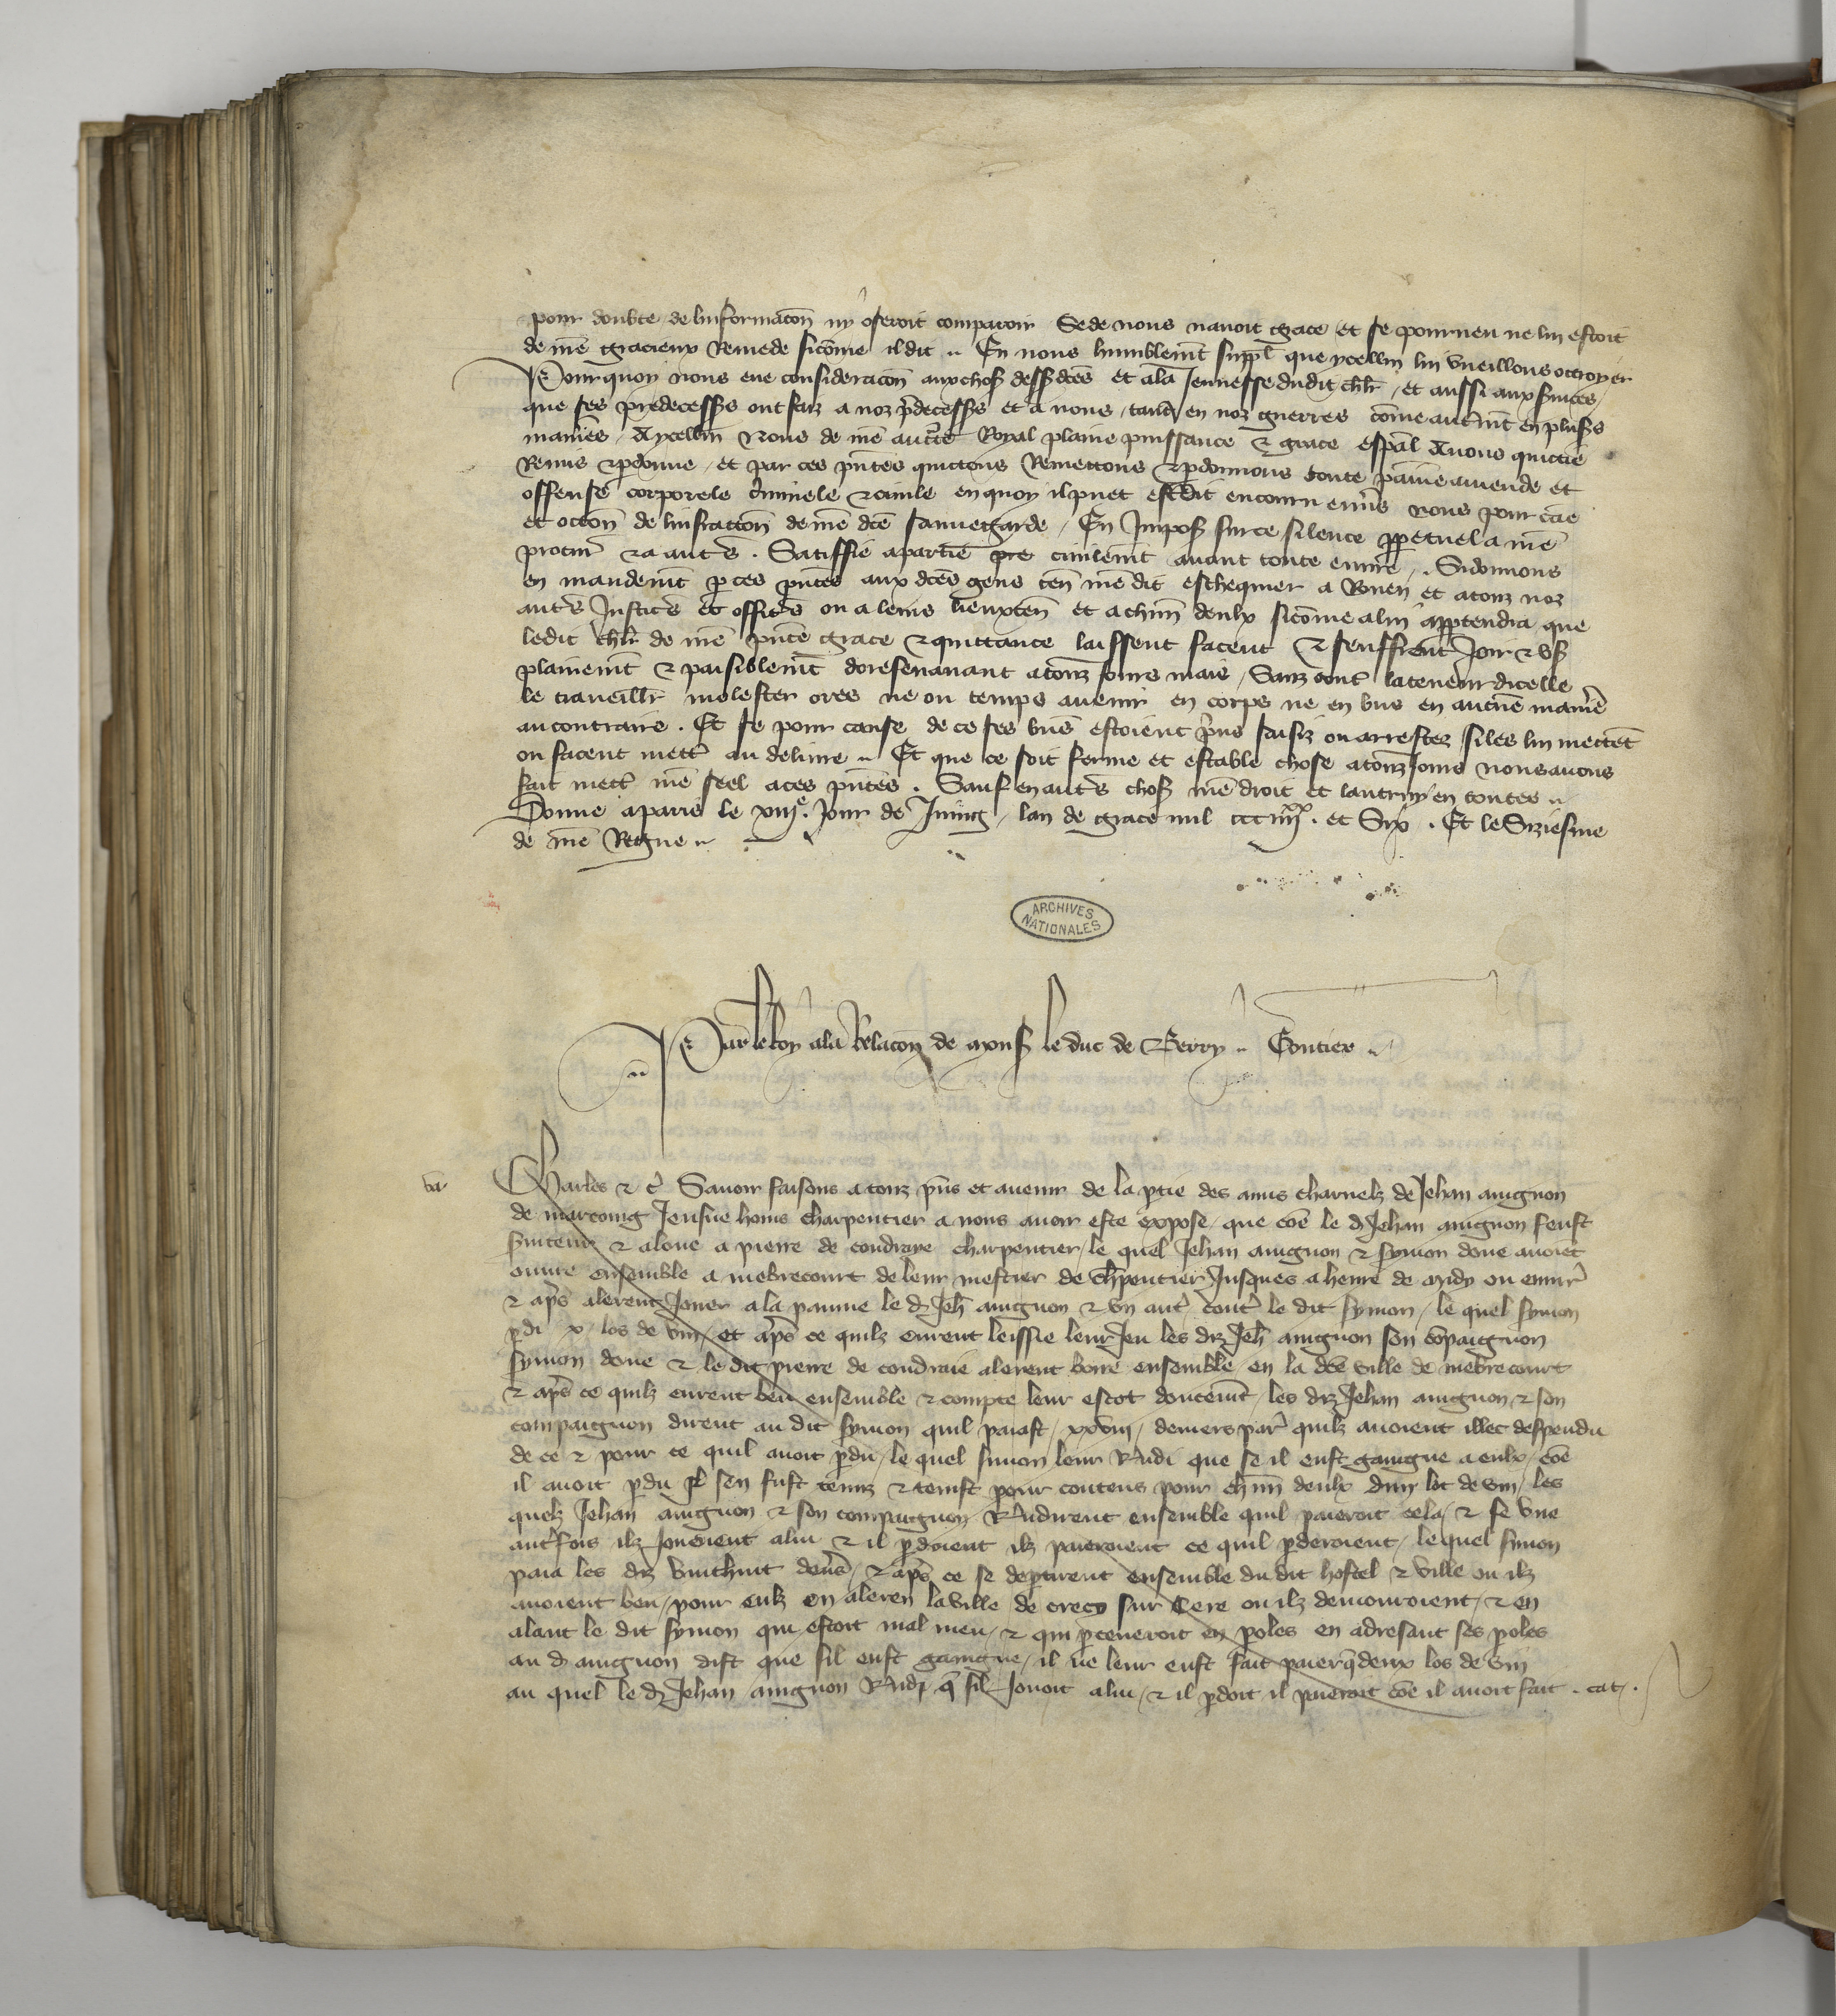 pour doubte de linformacon ny oseroit comparoir Se de nous navoit grace et se pourveu ne lui estoit
de nre gracieux Remede sicomme il dit En nous humblemt suppl que ycellui lui vueillons octroyer
Pourquoy nous eue consideracon aux chos dessus dces et a la Jennesse dudit chlr et aussi aux svices
que ses predecessrs ont faiz a noz predecessrs et a nous tant en noz guerres come autremt en plusrs
manies A ycellui Nous de nre aucte Royal plaine puissance & grace espal Avons quictie
Remis & pdonne et par ces pntes quictons Remettons & pdonnons toute paine amende et
offense corporele criminele & civile en quoy il puet estre dit encouru envs nous pour cae
et occon de linfraccon de nre dce sauvegarde En Imposs sur ce silence ppetuel a nre
procur & a autes . Satiffie a partie pre civilemt avant toute euvre . Si donnons
en mandemt p ces pntes aux dces gens ten nre dit eschequier a Rouen et a touz noz
autrs Justics et offics ou a leurs lieuxten et a chun deulx sicome a lui apptendra que
ledit chlr de nre pnte grace & quittance laissent facent & seuffrent Joir & us
plainemt & paisiblemt doresenavant a touz jours mais Sanz contre la teneur dicelle
le traveillr molester ores ne ou temps avenir en corps ne en bns en aucune maniere
au contraire . Et se pour cause de ce ses bns estoient pris saisiz ou arrestez si les lui mectet
ou facent mettr au delivre Et que ce soit ferme et estable chose a touz jours nous avons
fait mectr nre seel a ces pntes . Sauf en autrs chos nre droit et lautruy en toutes
Donne a paris le xiiije Jour de Juing lan de grace mil ccc iiijxx . et Six . Et le Siziesme
de nre Regne
ARCHIVES NATIONALES
Par le Roy a la Relacon de mons le duc de Berry Gontier
Charles & c Savoir faisons a touz pns et avenir de la ptie des amis charnelz de Jehan avignon
de marcoing Jeusne homs charpentier a nous avoir este expose que coe le d Jehan avignon feust
sviteur & aloue a pierre de coudraye charpentier le quel Jehan avignon & symon doue avoiet
ouvre ensemble a mebrecourt de leur mestier de chpentier Jusques a heure de midy ou envir
& aps alerent Jouer a la paume le d Jeh avignon & un autr contr le dit symon le quel symon
pdi x los de vin et aps ce quilz eurent leissie leur Jeu les diz Jeh avignon son copaignon
symon doue & le dit pierre de coudraie alerent boire ensemble en la dce ville de mebrecourt
& aps ce quilz eurent beu ensemble & compte leur escot doucemt les diz Jehan avignon & son
compaignon dirent au dit symon quil paiast xxviij deniers par quilz avoient illec despendu
de ce & pour ce quil avoit pdu le quel simon leur Rndi que se il eust gaaigne a eulx coe
il avoit pdu Il sen fust tenuz & tenist pour contens pour chun deulx dun lot de vin les
quelz Jehan avignon & son compaignon Rndirent ensemble quil paieroit cela & se une
autrfois ilz Jouoient a lui & il pdoient ilz paieroient ce quil pderoient lequel simon
paia les diz vinthuit dens & aps ce se deptirent ensemble du dit hostel & ville ou ilz
avoient beu pour eulz en aler en la ville de crecy sur Cere ou ilz demouroient & en
alant le dit symon qui estoit mal meu & qui pceveroit en poles en adresant ses poles
au d avignon dist que sil eust gaaigne il ne leur eust fait paier q deux los de vin
au quel le d Jehan avignon Rndi q sil Jouoit a lui & il pdoit il paieroit coe il avoit fait . cat .